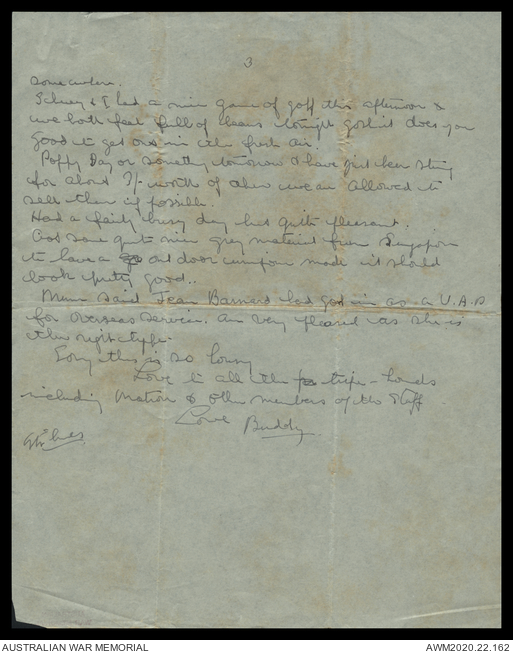 3
somewhere.
& I had a nice game of golf this afternoon &
we both feel full of beans tonight gosh it does you
good to get out in the fresh air.
Poppy Day or something tomorrow I have just been stung
for about 7/- worth of them we are allowed to
sell them if possible.
Had a fairly busy day but quite pleasant.
Got some quite nice grey material from Singapore
to have a out door uniform made it should
look pretty good..
Mum said Jean Barnard had got in as a V.A.D
for overseas service. Am very pleased as she is
the right type.
Sorry this is so lousy
Love to all the - hounds
including Matron & other members of the Staff
Love Buddy.
AUSTRALIAN WAR MEMORIAL
AWM2020.22.162